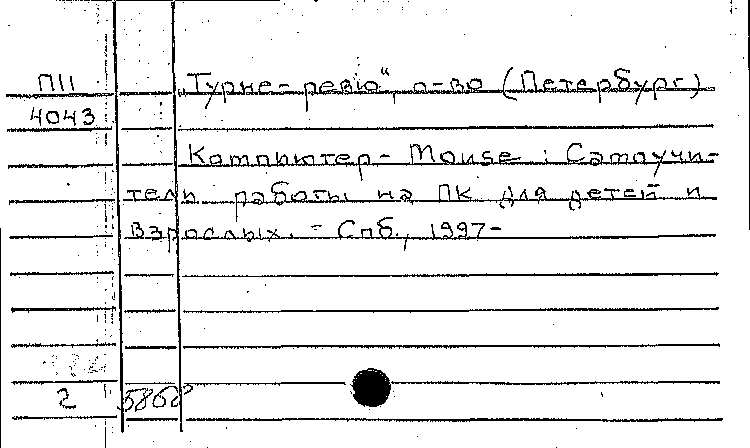 П11
4043
„Турне-ревю“, о-во (Петербург)
Компьютер-Mouse : Самоучи-
тель работы на ПК для детей и
взрослых. - Спб., 1997-
2